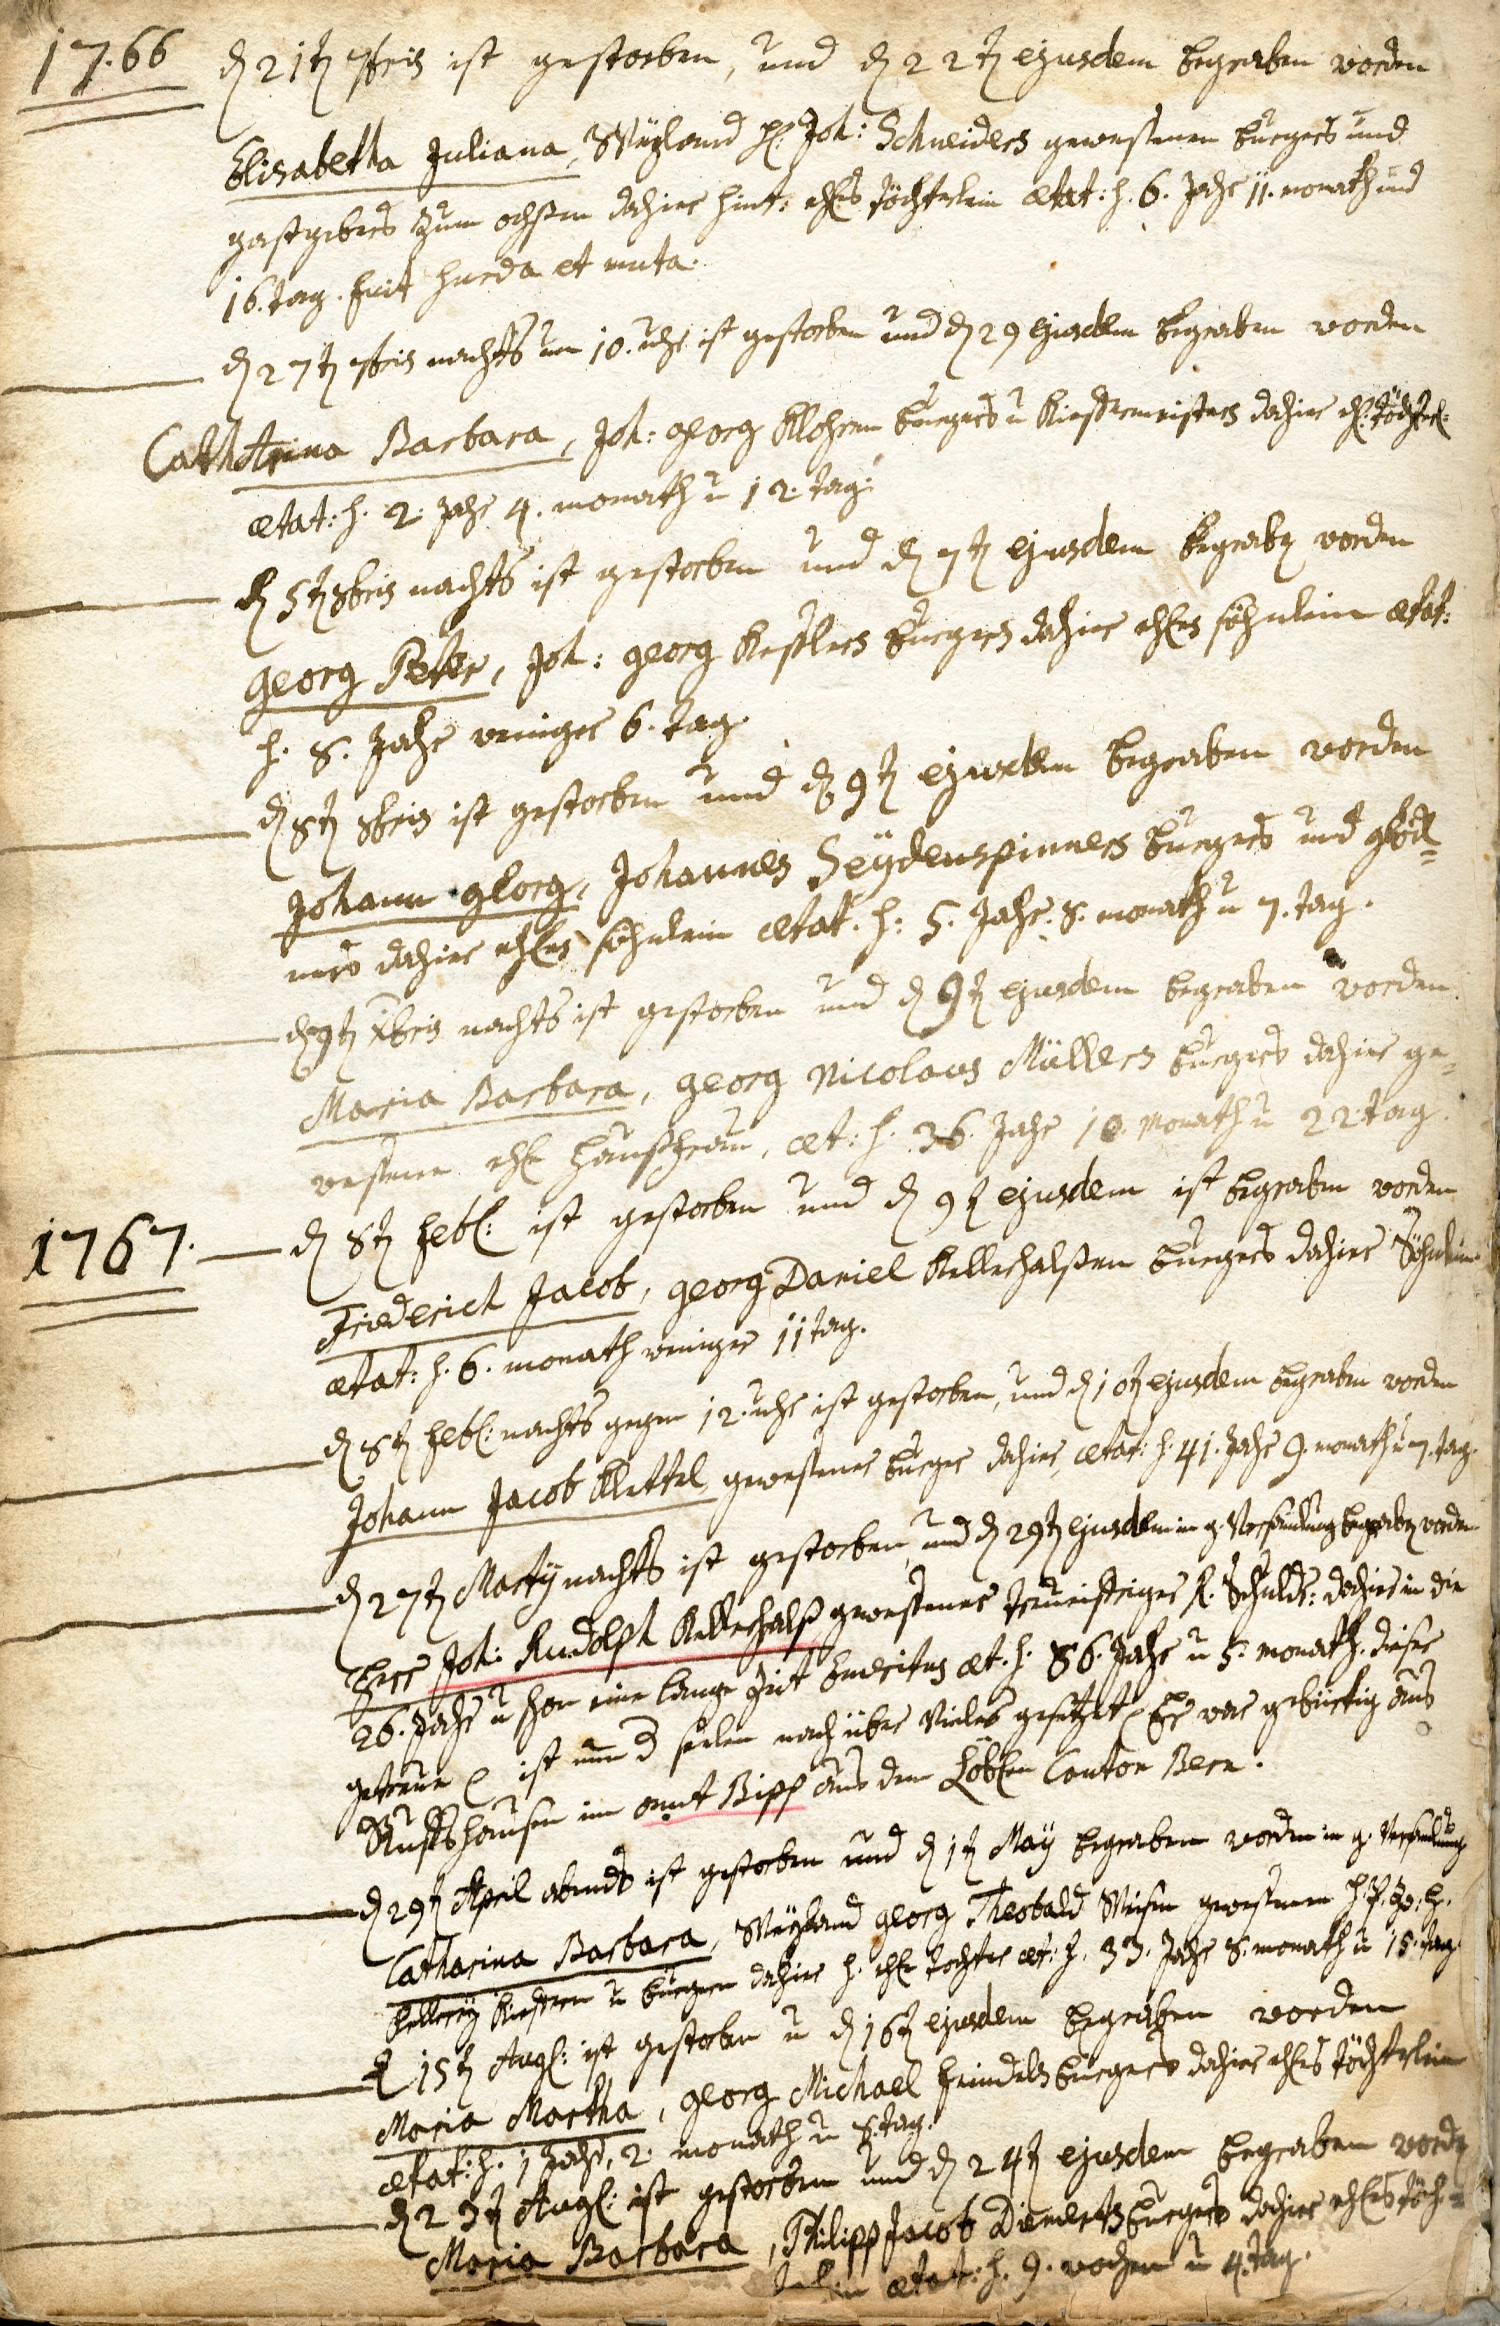 1766 d 21t 7bris ist gestorben, und d 22t ejusdem begraben worden
Elisabetha Juliana, Weyland H: Joh: Schneiders gewesenen burgers und
gastgebers zum ochsen dahier hint: ehl: töchterlein ætat: s. 6. Jahr 11. monath und
16. tag. fuit surda et muta.
d 27t 7bris nachts um 10. uhr ist gestorben und d 29 ejusdem begraben worden
Catharina Barbara, Joh: Georg Klohren burgers u Kiefermeisters dahier ehl: töchterl:
ætat: s. 2. Jahr 4. monath u 12. tag.
d 5t 8bris nachts ist gestorben und d 7t ejusdem begraben worden
Georg Peter, Joh: Georg Keßlers burgers dahier ehles söhnlein ætat:
s. 8. Jahr weniger 6. tag.
d 8t 8bris ist gestorben und d 9t ejusdem begraben worden
Johann Georg, Johannes Seÿdenspinners burgers und
dahier ehles söhnlein ætat. s: 5. Jahr. 8. monath u 7. tag.
d 9t Xbris nachts ist gestorben und d 9t ejusdem begraben worden
Maria Barbara, Georg Nicolaus Müllers burgers dahier ge-
wesene ehl haußfrau, æt: s. 36. Jahr 10. Monath u 22. tag.
1767. d 8t Febr: ist gestorben und d 9t ejusdem ist begraben worden
Friederich Jacob, Georg Daniel Kellerhalßen burgers dahier Söhnlein
ætat: s. 6. monath weniger 11 tag.
d 8t Febr: nachts gegen 12. uhr ist gestorben, und d 10t ejusdem begraben worden
Johann Jacob Klettel, gewesener burger dahier, ætat: s. 41. Jahr 9. monath u 7. tag.
d 27t Martÿ nachts ist gestorben, und d 29t ejusdem in g. Versamlung begraben worden
Herr Joh: Rudolph Kellerhalß gewesener Schuld: dahier in die
26. Jahr u schon eine lange Zeit emeritus æt. s. 86. Jahr u 5. monath. dieser
getreue ist nun seelen nach über Vieles gesetzet. Er war gebürtig aus
im amt Bipp aus dem Löbl. Canton Bern.
d 29t April abends ist gestorben und d 1t Maÿ begraben worden in g. Versamlung
Catharina Barbara, Weyland Georg Theobald Weisen gewesenen
Kellereÿ Kiefern u burgern dahier h. ehl tochter æt: s. 33. Jahr 8. monath u 15. tag.
d 15t Aug: ist gestorben u d 16t ejusdem begraben worden
Maria Martha, Georg Michael Heindels burgers dahier ehles töchterlein
ætat: s. 1 Jahr, 2. monath u 8. tag.
d 23t Aug: ist gestorben und d 24t ejusdem begraben worden
Maria Barbara, Philipp Jacob Diemerts burgers dahier ehles töch-
terlein ætat: s. 9. wochen u 4. tag.